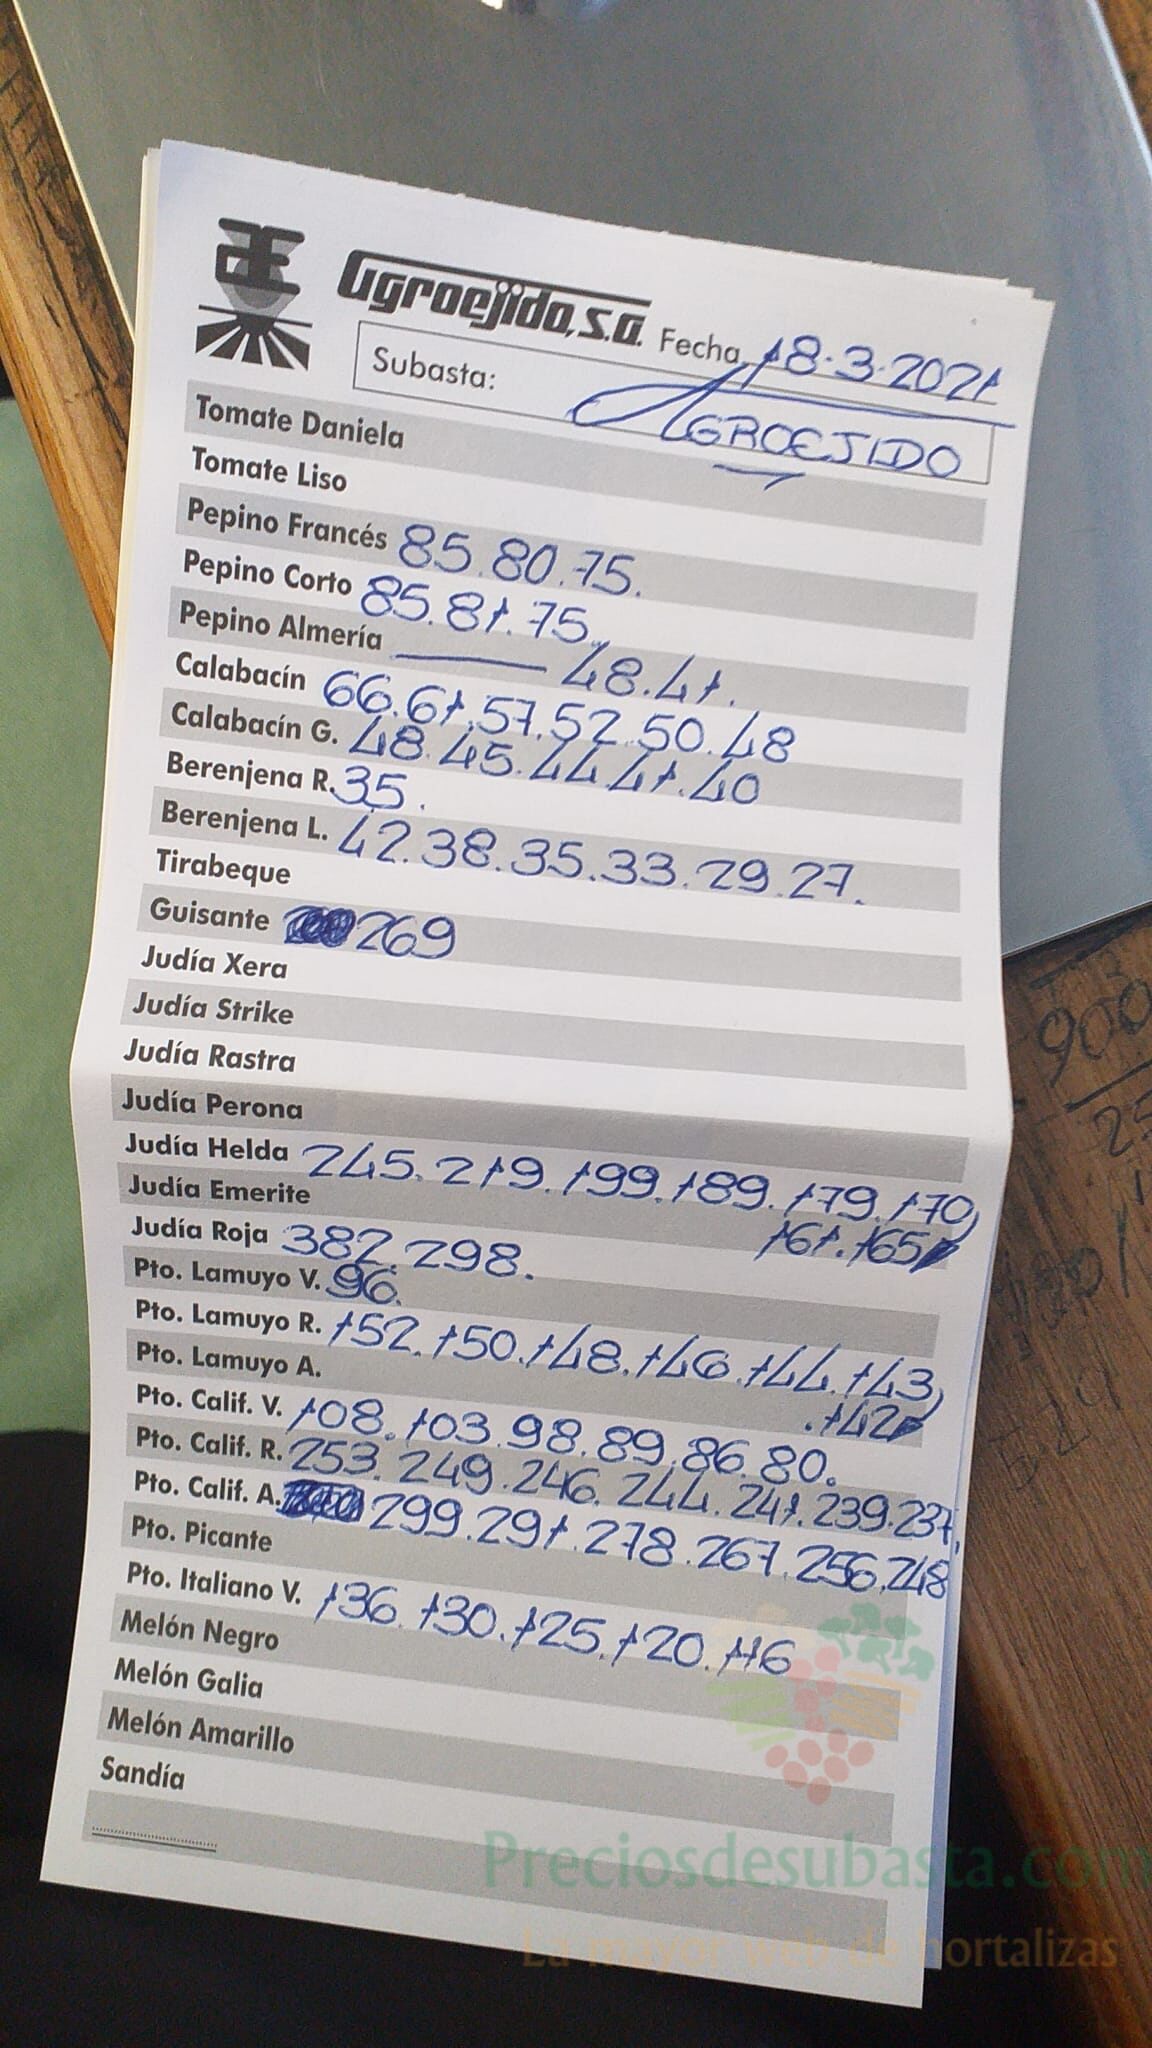 Œ Agroejido, S.A. Fecha 18-3-2021
Subasta: AGROEJIDO
Tomate Daniela
Tomate Liso
Pepino Francés 85.80.75.
Pepino Corto 85.81.75.
Pepino Almería —— 48.41.
Calabacín 66.61.57.52.50.48
Calabacín G. 48.45.44.41.40
Berenjena R. 35.
Berenjena L. 42.38.35.33.29.27.
Tirabeque
Guisante 269
Judía Xera
Judía Strike
Judía Rastra
Judía Perona
Judía Helda 245.219.199.189.179.170,
161.165
Judía Emerite
Judía Roja 382.298.
Pto. Lamuyo V. 96.
Pto. Lamuyo R. 152.150.148.146.144.143,
.142
Pto. Lamuyo A.
Pto. Calif. V. 108.103.98.89.86.80.
Pto. Calif. R. 253.249.246.244.241.239.237,
Pto. Calif. A. 299.291.278.267.256.248
Pto. Picante
Pto. Italiano V. 136.130.125.120.116
Melón Negro
Melón Galia
Melón Amarillo
Sandía
Preciosdesubasta.com
La mayor web de hortalizas
900